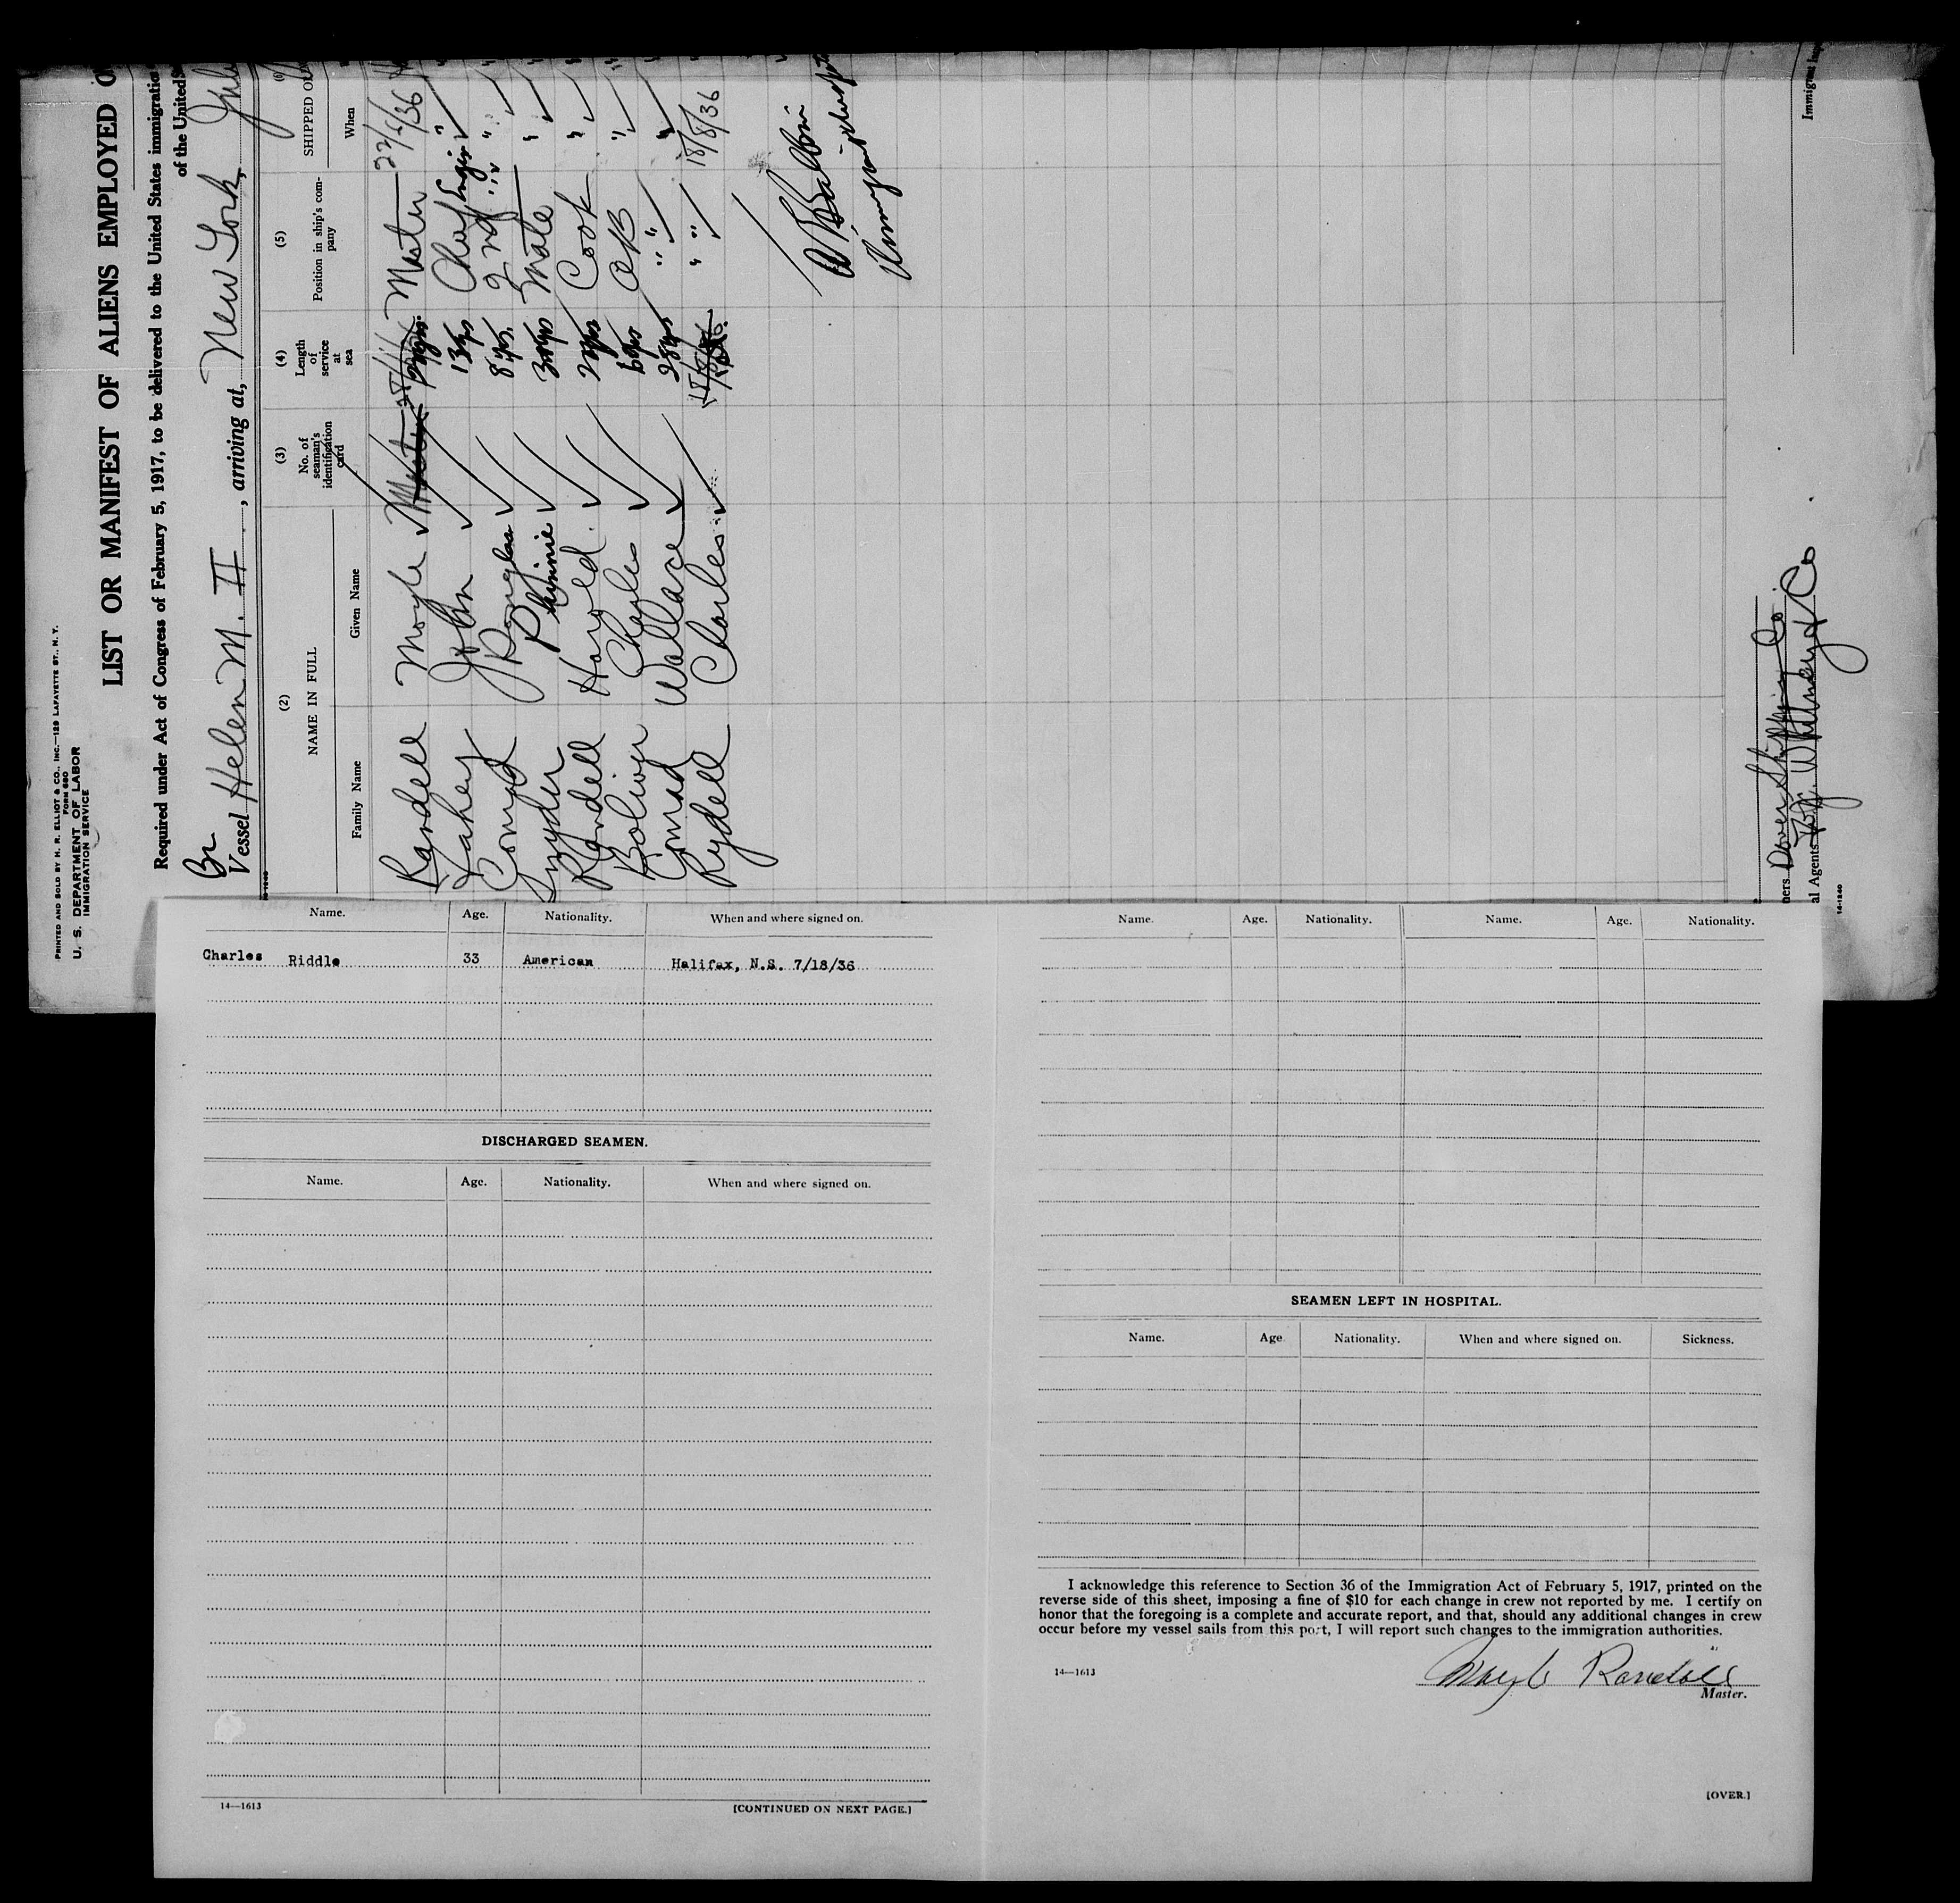 PRINTED AND SOLD BY H. R. ELLIOT & CO., INC.—129 LAFAYETTE ST., N. Y.
FORM 680
U. S. DEPARTMENT OF LABOR
IMMIGRATION SERVICE
LIST OR MANIFEST OF ALIENS EMPLOYED O
Required under Act of Congress of February 5, 1917, to be delivered to the United States immigratio
of the United S
Br
Vessel Helen M. II, arriving at, New York,
(2) (3) (4) (5) (6)
NAME IN FULL No. of seaman's identification card Length of service at sea Position in ship's company SHIPPED OR
Family Name Given Name When
Randell Moyle Master 22/5/36
Fahey John 13 yrs Chief Engin "
Conrad Douglas 8 yrs. 2nd " "
Snyder Phinnie 30 yrs Mate "
Randell Harold 2 yrs Cook "
Boliver Charles 6 yrs AB "
Conrad Wallace 28 yrs " " "
Rydell Charles " " 18/8/36
ners Dover Shipping Co.
al Agents
14-1240
Immigrant Insp
Name. Age. Nationality. When and where signed on.
Charles Riddle 33 American Halifax, N.S. 7/18/36
DISCHARGED SEAMEN.
Name. Age. Nationality. When and where signed on.
14—1613 [CONTINUED ON NEXT PAGE.]
Name. Age. Nationality. Name. Age. Nationality.
SEAMEN LEFT IN HOSPITAL.
Name. Age. Nationality. When and where signed on. Sickness.
I acknowledge this reference to Section 36 of the Immigration Act of February 5, 1917, printed on the
reverse side of this sheet, imposing a fine of $10 for each change in crew not reported by me. I certify on
honor that the foregoing is a complete and accurate report, and that, should any additional changes in crew
occur before my vessel sails from this port, I will report such changes to the immigration authorities.
14—1613
Moyle Randell
Master.
[OVER.]